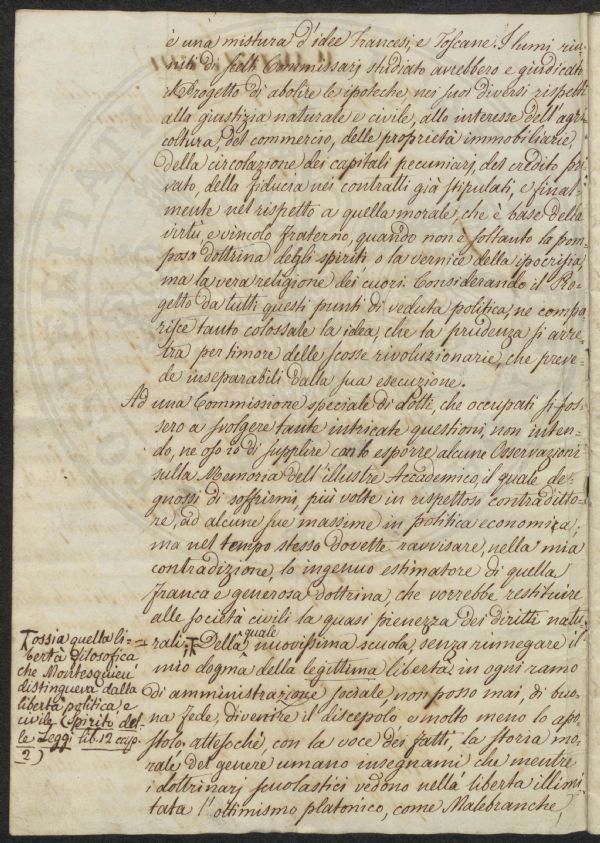 è una mistura d'idee Francesi, e Toscane. I lumi riu-
niti di tali Commissarj studiato avrebbero e giudicato
il Progetto di abolire le ipoteche nei suoi diversi rispetti
alla giustizia naturale e civile, allo interesse dell'agri-
coltura, del commercio, delle proprietà immobiliarie,
della circolazione dei capitali pecuniarj, del credito pri-
vato, della fiducia nei contratti già stipulati, e final-
mente nel rispetto a quella morale, che è base della
virtù, e vincolo fraterno, quando non è soltanto la pom-
posa dottrina degli spiriti, o la vernice della ipocrisia,
ma la vera religione dei cuori. Considerando il Pro-
getto da tutti questi punti di veduta politica, ne compa-
risce tanto colossale la idea, che la prudenza si arre-
tra per timore delle scosse rivoluzionarie, che preve-
de inseparabili dalla sua esecuzione.
Ad una Commissione speciale di dotti, che occupati si fos-
sero a svolgere tante intricate questioni, non inten-
do, ne oso io di supplire con lo esporre alcune Osservazioni
sulla Memoria dell'illustre Accademico, il quale de-
gnossi di soffrirmi, più volte in rispettoso contraditto-
re, ad alcune sue massime in politica economica;
ma nel tempo stesso dovette ravvisare, nella mia
contradizione, lo ingenuo estimatore di quella
franca e generosa dottrina, che vorrebbe restituire
alle società civili la quasi pienezza dei diritti natu-
rali; Della quale nuovissima scuola, senza rinnegare il
mio dogma della legittima libertà in ogni ramo
di amministrazione sociale, non posso mai, di buo-
na fede, divenire il discepolo e molto meno lo apo-
stolo, attesoché, con la voce dei fatti, la storia mo-
rale del genere umano insegnami che mentre
i dottrinarj scuolastici vedono nella libertà illimi-
tata l'ottimismo platonico, come Malebranche,
ossia quella li-
bertà filosofica
che Montesquieu
distingueva dalla
libertà politica, e
civile (Spirito del-
le Leggi lib. 12 cap.
2)